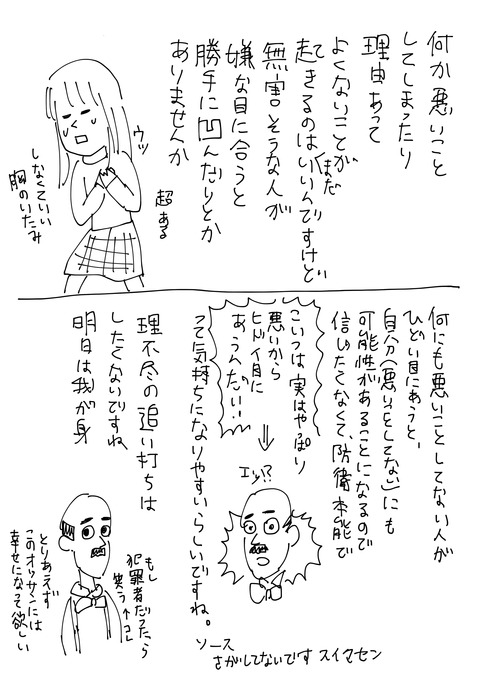 何か悪いこと
してしまったり
理由あって
よくないことが
起きるのは(まだ
いいんですけど
無害そうな人が
嫌な目に合うと
勝手に凹んだりとか
ありませんか
ウッ
超ある
しなくていい
胸のいたみ
何にも悪いことしてない人が
ひどい目にあうと、
自分(悪いことしてない)にも
可能性があることになるので
信じたくなくて、防衛本能で
こいつは実はやっぱり
悪いから
ヒドイ目に
あうんだい!!
⇒
エッ!?
って気持ちになりやすいらしいですね。
ソース
さがしてないです スイマセン
理不尽の追い打ちは
したくないですね
明日は我が身
もし
犯罪者だったら
笑う↑コレ
とりあえず
このオッサンには
幸せになって欲しい